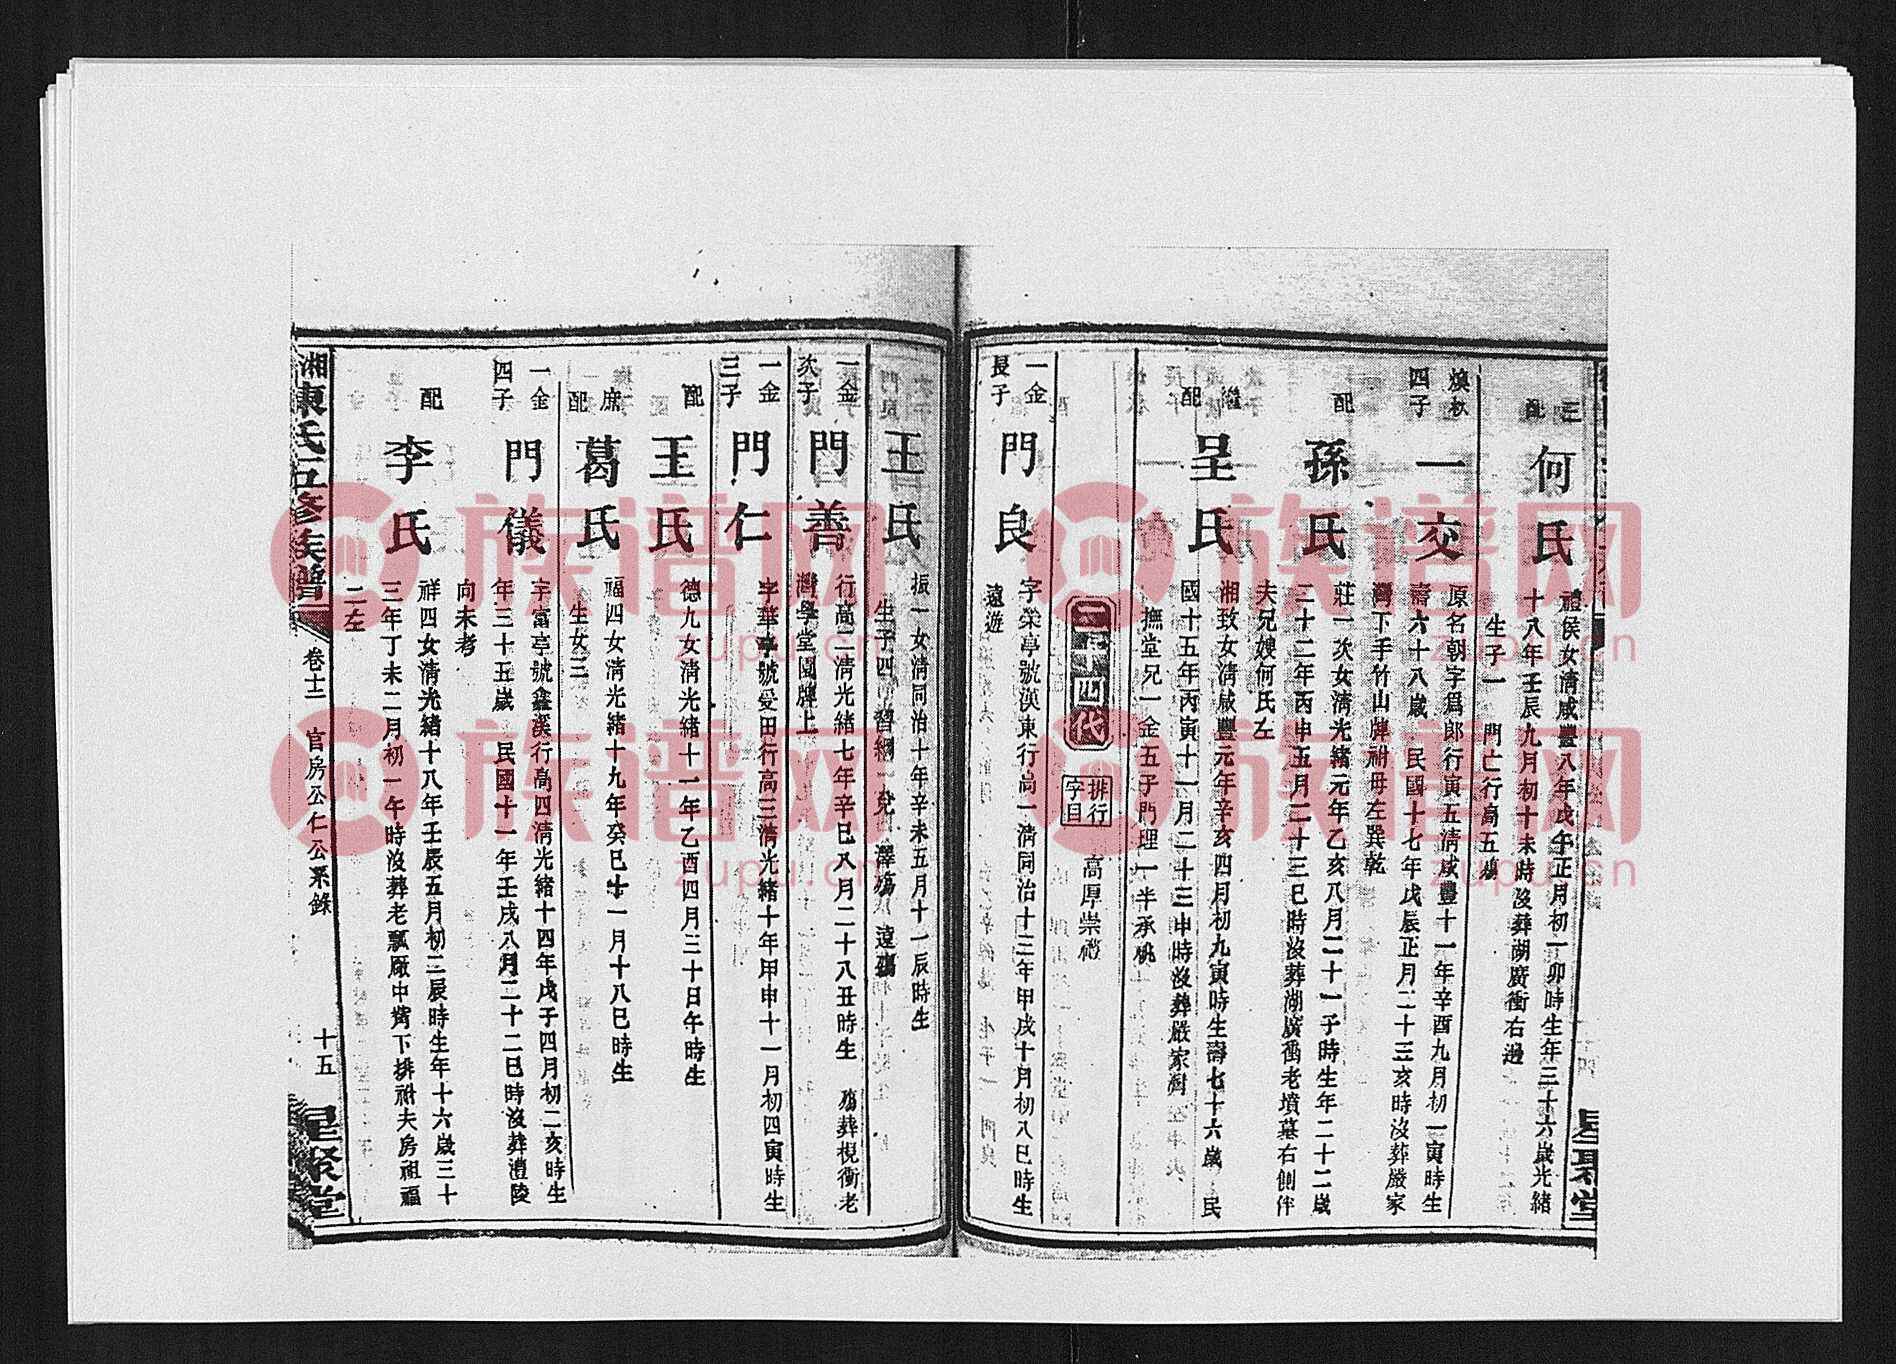 三配
何氏
禮侯女清咸豐八年戊午正月初一卯時生年三十六歲光緒
十八年壬辰九月初十未時沒葬湖廣衝右邊
生子一 門亡行高五殤
煥秋四子
一交
原名朝字爲郎行寅五清咸豐十一年辛酉九月初一寅時生
壽六十八歲 民國十七年戊辰正月二十三亥時沒葬嚴家
灣下手竹山牌祔母左巽乾
配
孫氏
莊一次女清光緒元年乙亥八月二十一子時生年二十二歲
二十二年丙申五月二十三巳時沒葬湖廣衝老墳墓右側伴
夫兄嫂何氏左
繼配
呈氏
湘致女清咸豐元年辛亥四月初九寅時生壽七十六歲 民
國十五年丙寅十一月二十三申時沒葬嚴家灣
撫堂兄一金五子門理一半承祧
二十四代
排行字目
高厚崇禮
一金長子
門良
字榮亭號漢東行高一清同治十三年甲戌十月初八巳時生
遠遊
王氏
振一女清同治十年辛未五月十一辰時生
生子四 習綱 兌 澤殤 遠殤
一金次子
門善
行高二清光緒七年辛巳八月二十八丑時生 殤葬楓衝老
灣學堂園牌上
一金三子
門仁
字華亭號受田行高三清光緒十年甲申十一月初四寅時生
配
王氏
德九女清光緒十一年乙酉四月三十日午時生
庶配
葛氏
福四女清光緒十九年癸巳十一月十八巳時生
生女三
一金四子
門儀
字富亭號鑫溪行高四清光緒十四年戊子四月初二亥時生
年三十五歲 民國十一年壬戌八月二十二巳時沒葬澧陵
向未考
配
李氏
祥四女清光緒十八年壬辰五月初二辰時生年十六歲三十
三年丁未二月初一午時沒葬老瓢廠中嘴下排祔夫房祖福
二左
湘東氏五修族譜
卷十二 官房公仁公系錄
十五
星聚堂
星聚堂
族谱网
zupu.cn
族谱网
zupu.cn
族谱网
zupu.cn
族谱网
zupu.cn